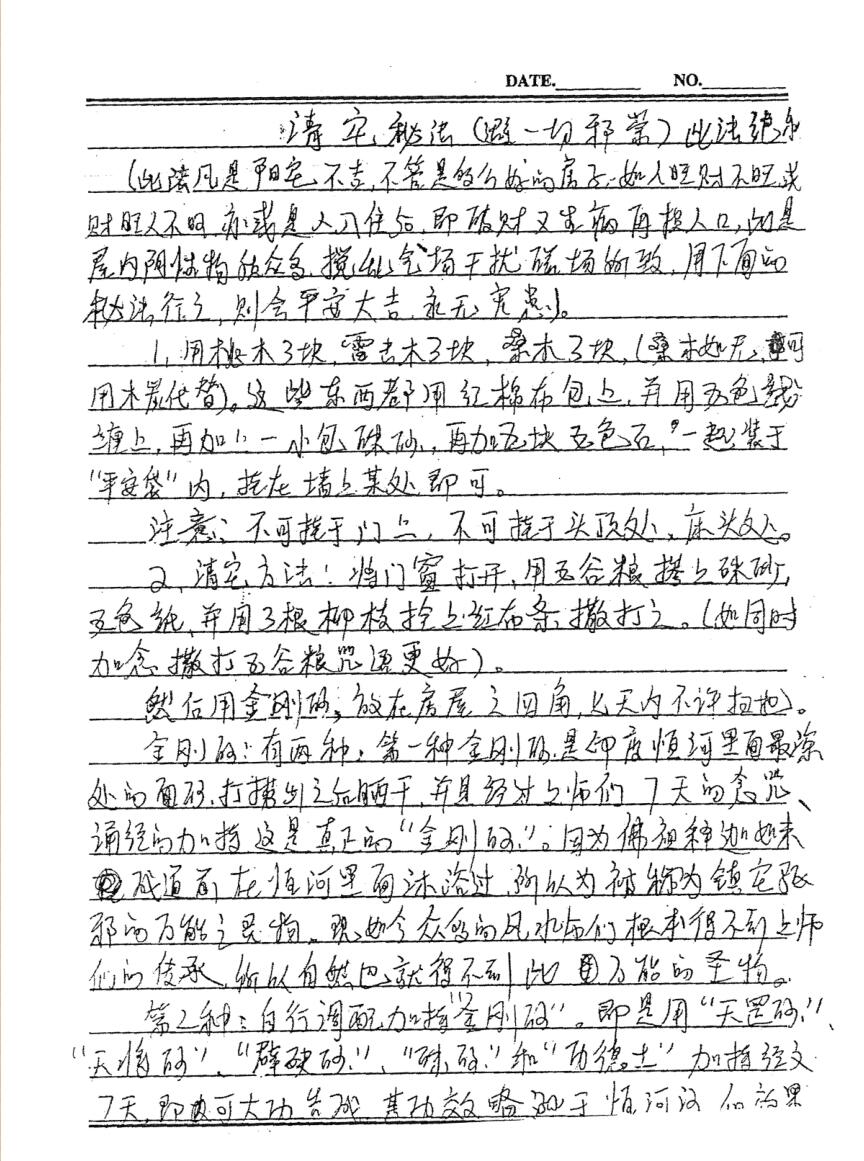 DATE. NO.
清宅秘法（避一切邪祟）此法绝
（此法凡是阳宅不吉，不管是多么好的房子，如人旺财不旺或
财旺人不旺亦或是人入住后，即破财又生病再损人口，此是
屋内阴性物质众多，搅乱气场干扰磁场所致，用下面的
秘法行之，则会平安大吉，永无危患）。
1，用桃木3块，雷击木3块，桑木3块，（桑木如无，可
用木炭代替）。这些东西都用红棉布包上，并用五色线
缠上，再加上一小包硃砂，再加五块五色石，一起装于
“平安袋”内，挂在墙上某处即可。
注意：不可挂于门上，不可挂于头顶处、床头处。
2，清宅方法：将门窗打开，用五谷粮拌上硃砂，
五色纸，并用3根柳枝拴上红布条，撒打之。（如同时
加念撒打五谷粮咒语更好）。
然后用金刚砂，放在房屋之四角，七天内不许扫地）。
金刚砂：有两种，第一种金刚砂是印度恒河里面最深
处的面砂，打捞出之后晒干，并且经过上师们7天的念咒、
诵经的加持这是真正的“金刚砂”。因为佛祖释迦如来
成道前在恒河里面沐浴过，所以为被称为镇宅驱
邪的万能之灵物。现如今众多的风水师们根本得不到上师
们的传承，所以自然也就得不到此万能的圣物。
第2种：自行调配加持“金刚砂”。即是用“天罡砂”、
“天将砂”、“辟砂”、“硃砂”和“功德土”加持经文
7天，即可大功告成，其功效略弱于恒河沙的效果